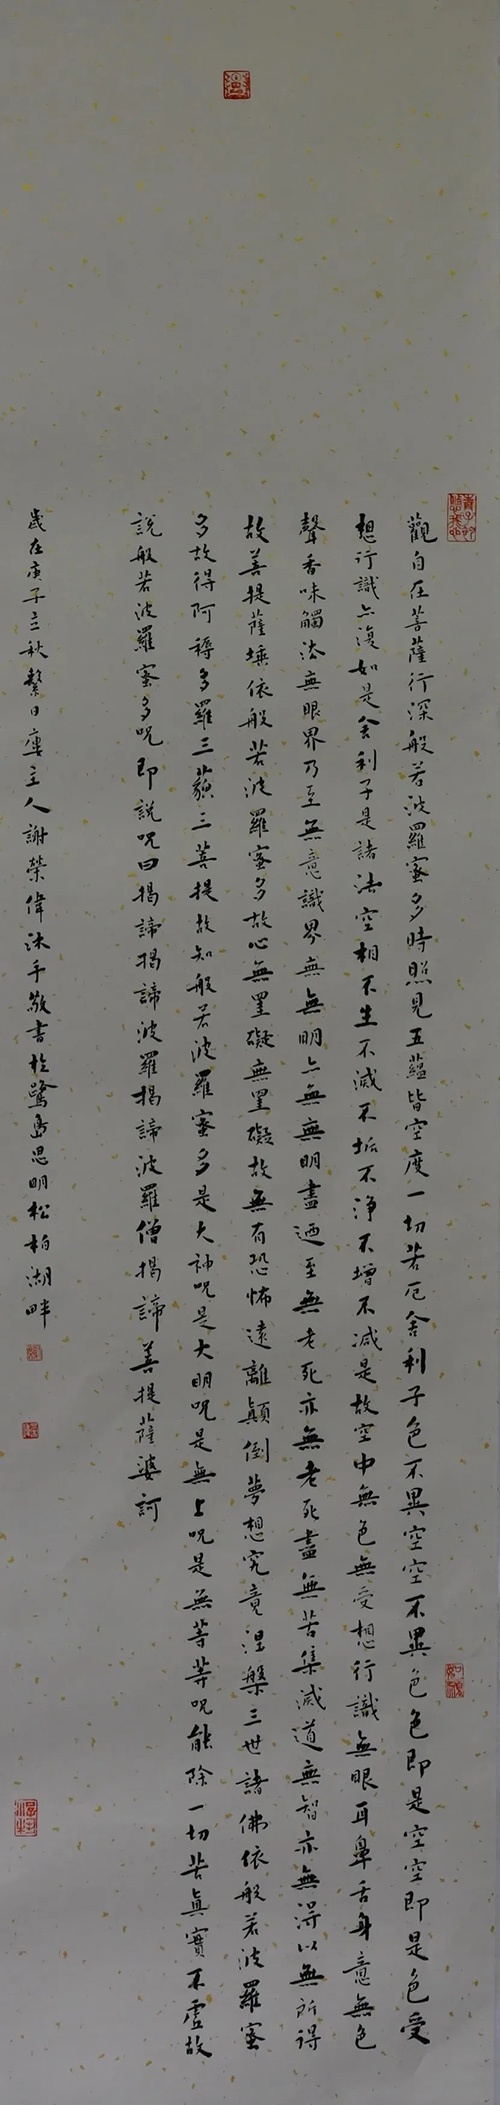 觀自在菩薩行深般若波羅蜜多時照見五蘊皆空度一切苦厄舍利子色不異空空不異色色即是空空即是色受
想行識亦復如是舍利子是諸法空相不生不滅不垢不淨不增不減是故空中無色無受想行識無眼耳鼻舌身意無色
聲香味觸法無眼界乃至無意識界無無明亦無無明盡迺至無老死亦無老死盡無苦集滅道無智亦無得以無所得
故菩提薩埵依般若波羅蜜多故心無罣礙無罣礙故無有恐怖遠離顛倒夢想究竟涅槃三世諸佛依般若波羅蜜
多故得阿耨多羅三藐三菩提故知般若波羅蜜多是大神呪是大明呪是無上呪是無等等呪能除一切苦真實不虛故
說般若波羅蜜多呪即說呪曰揭諦揭諦波羅揭諦波羅僧揭諦菩提薩婆訶
歲在庚子立秋繫日廔主人謝榮偉沐手敬書於鷺島思明松柏湖畔